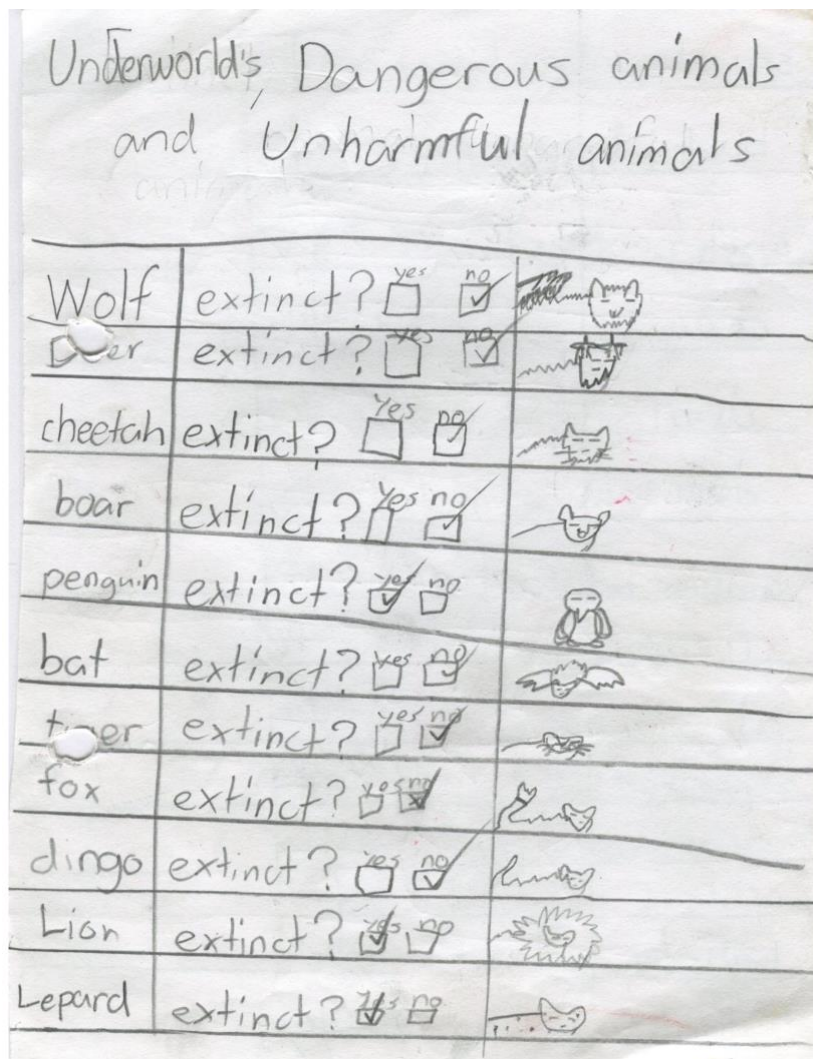 Underworld's, Dangerous animals
and Unharmful animals
Wolf extinct? yes no
extinct? yes no
cheetah extinct? Yes no
boar extinct? Yes no
penguin extinct? yes no
bat extinct? yes no
extinct? yes no
fox extinct? yes no
dingo extinct? yes no
Lion extinct? yes no
Lepard extinct? Yes no